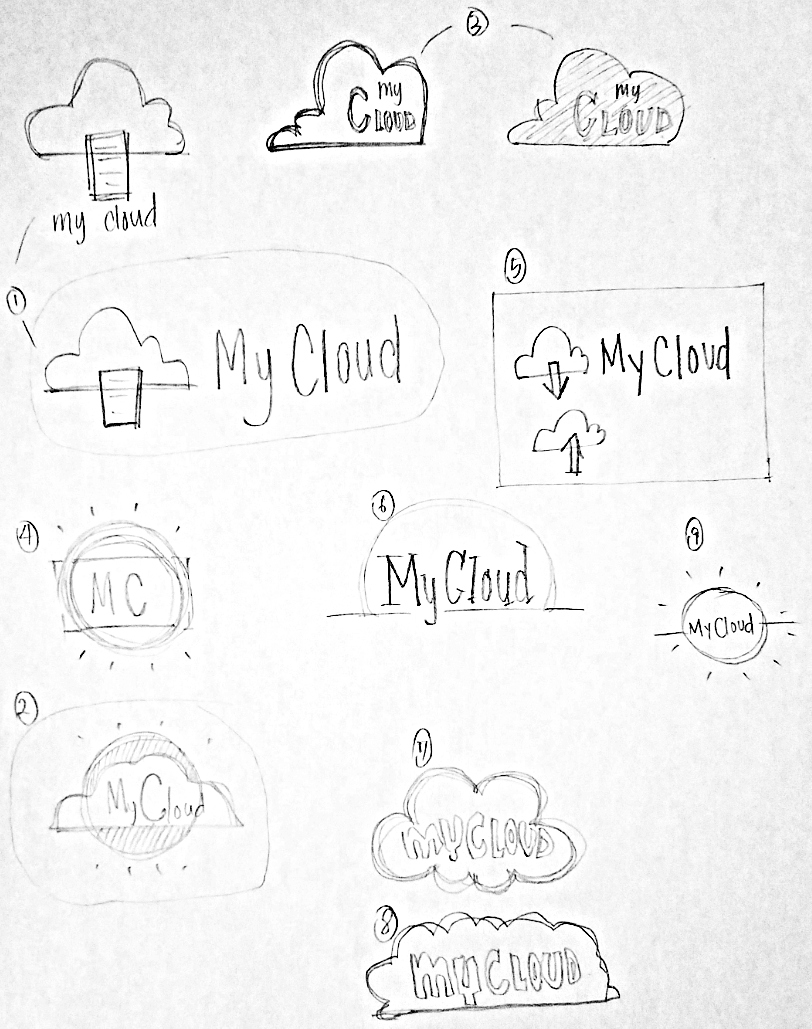 3
my
CLOUD
my
CLOUD
my cloud
1
My Cloud
5
My Cloud
4
MC
6
My Cloud
9
My Cloud
2
My Cloud
my CLOUD
8
my CLOUD